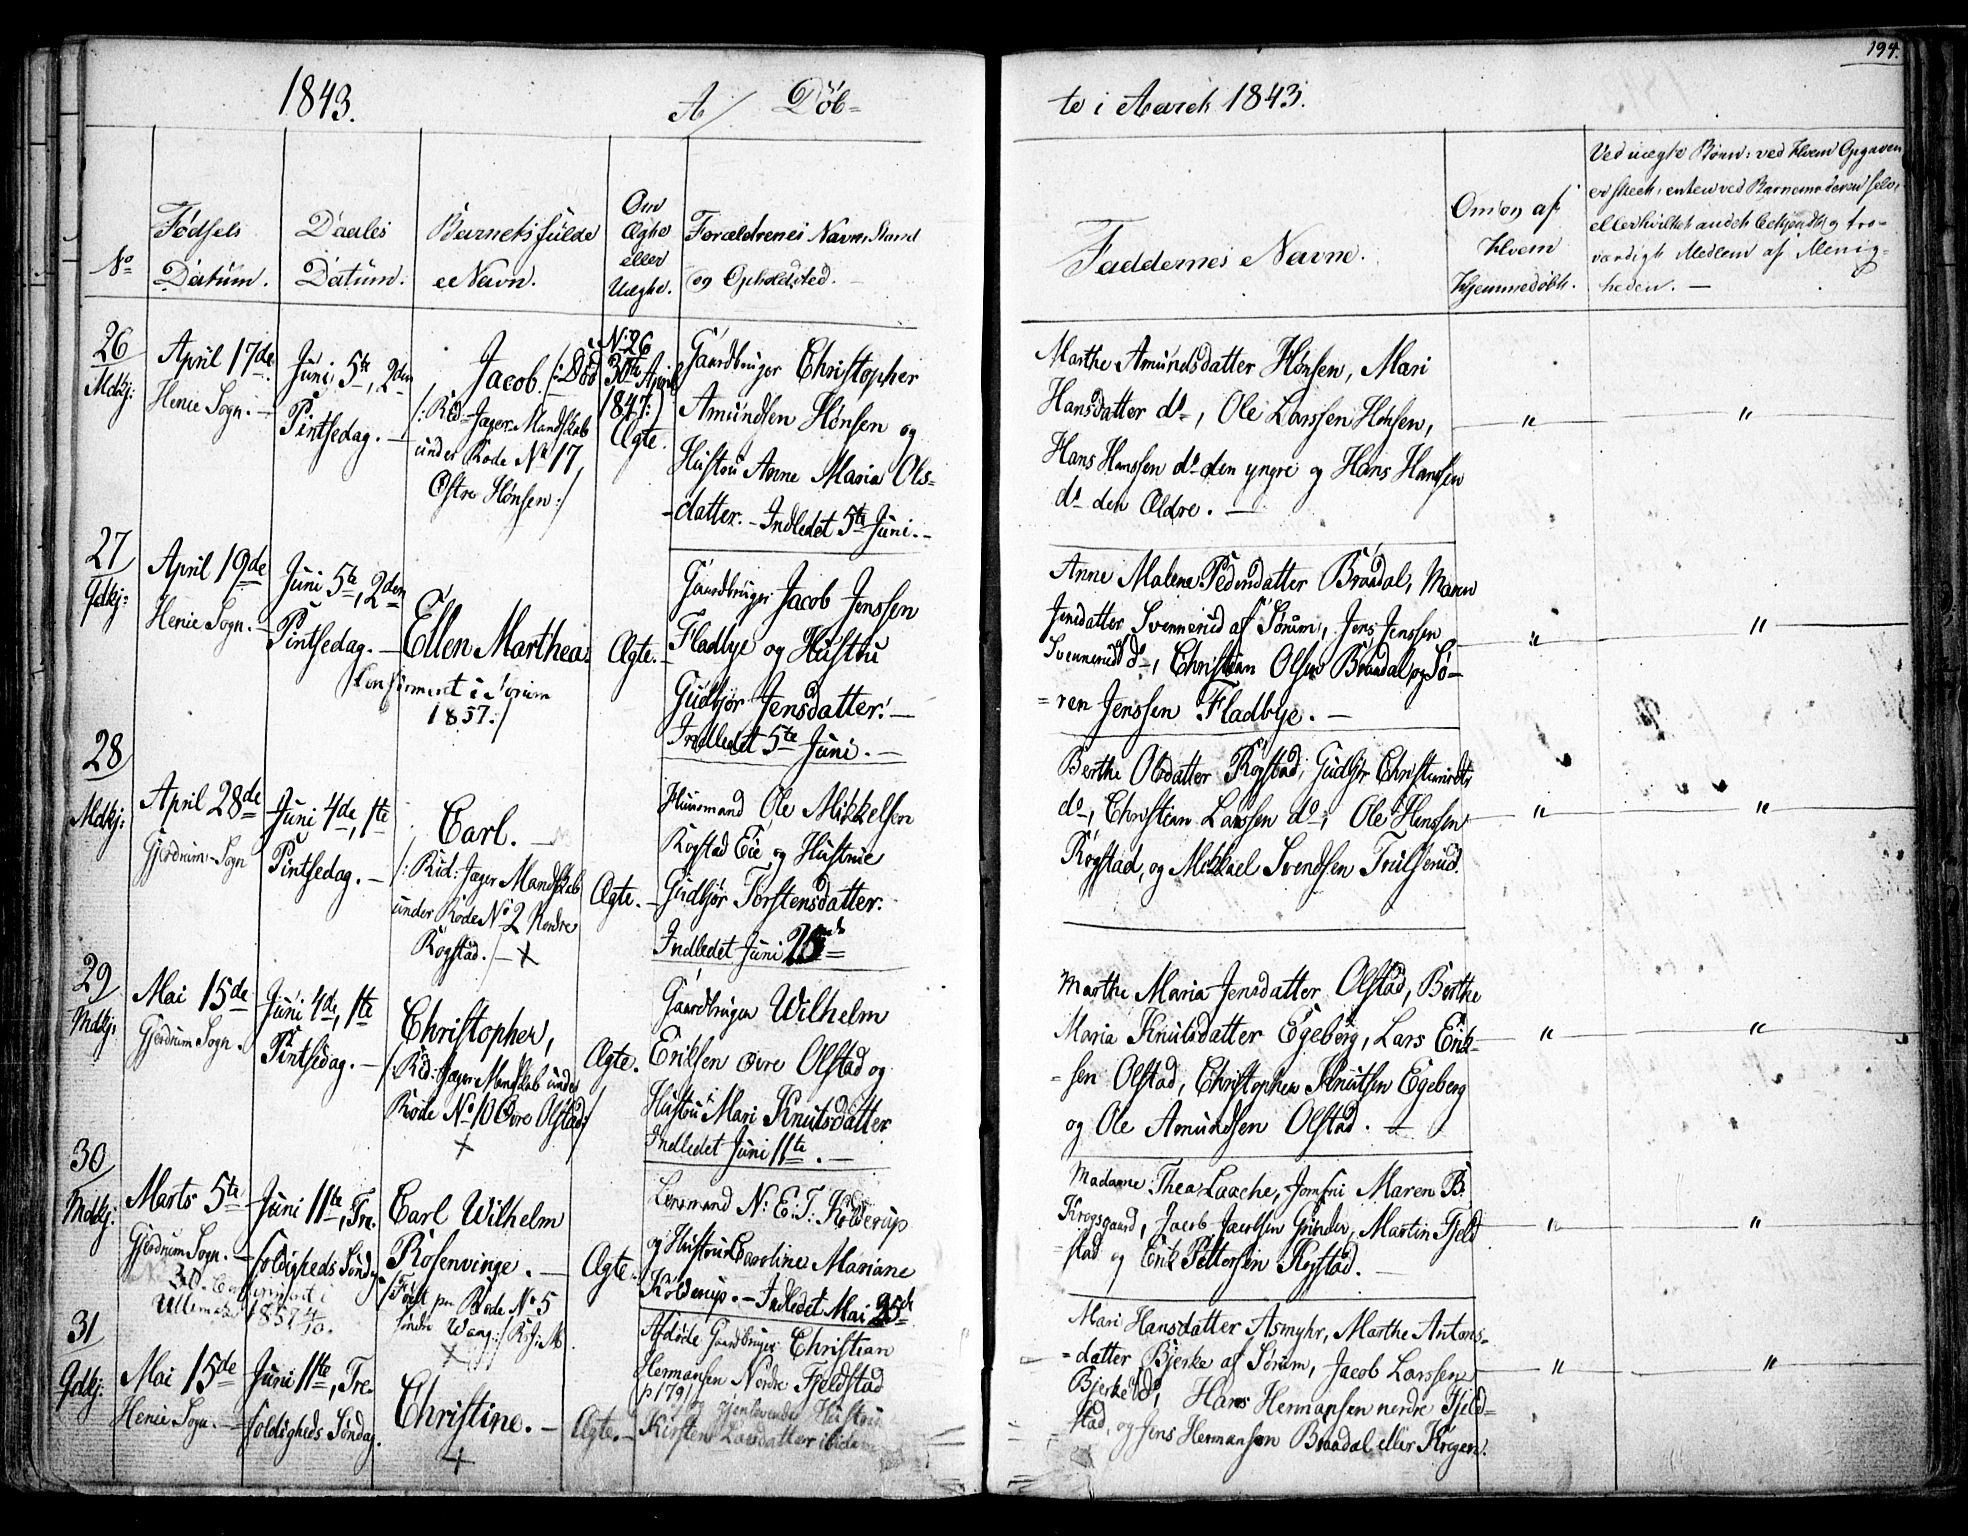 1843.
A/ Döb=
No
Födsels
Datum.
Daabs
Datum.
Barnets fulde
Navn.
Om
Ægte
eller
Uægte.
Forældrenes Navn, Stand
og Opholdssted.
26
Mdkj:
April 17de
Henie Sogn.
Juni 5te, 2den
Pintsedag.
Jacob. /: Död
/: Rid: Jæger-Mandskab
under Rode No 17,
Østre Hønsen :/
No 26
30te April
1847:)
Ægte.
Gaardbruger Christopher
Amundsen Hønsen og
Hustru Anne Maria Ols-
-datter. - Indledet 5te Juni. -
27
Qdkj:
April 19de
Henie Sogn.
Juni 5te, 2den
Pintsedag. -
Ellen Marthea.
1857:/
Ægte. -
Gaardbruger Jacob Jenssen
Fladbye og Hustru
Gudbjör Jensdatter. -
Indledet 5te Juni. -
28
Mdkj:
April 28de
Gjerdrum-Sogn
Juni 4de, 1te
Pintsedag. -
Carl. -
/: Rid: Jæger Mandskab
under Rode No 2 Nordre
Rogstad. /- +
Ægte. -
Huusmand Ole Mikkelsen
Rogstad Eie og Hustrue
Gudbjör Torstensdatter.
Indledet Juni 25de
29
Mdkj:
Mai 15de
Gjerdrum Sogn.
Juni 4de, 1te
Pintsedag. -
Christopher,
/: Rid: Jæger Mandskab under
Rode No 10 Øvre Olstad:/
+
Ægte.
Gaardbruger Wilhelm
Eriksen øvre Olstad og
Hustru Mari Knutsdatter
Indledet Juni 11te. -
30
Mdkj:
Marts 5te
Gjerdrum Sogn. -
30. Confirmert i
Ullensaker 1857 4/10.
Juni 11te, Tre-
foldigheds Söndag
Carl Wilhelm
Rosenvinge. -
/: Födt paa Rode No 5
söndre Wang:/
+
Ægte.
Lensmand N: E: T: Kolderup
og Hustrue Caroline Mariane
Kolderup. - Indledet Mai 25de
31
Qdkj:
Mai 15de
Henie Sogn. -
Juni 11te, Tre-
foldigheds Söndag.
Christine. -
+
Ægte. -
Afdöde Gaardbruger Christian
Hermansen Nordre Fjeldstad
og gjenlevende Hustru
Kirsten Larsdatter ibidem
194.
te i Aaret 1843.
Faddernes Navne.
Om og af
Hvem
Hjemmedöbt.
Ved uægte Börn: ved Hvem Opgaven
er skeet, enten ved Barnemoderen selv,
eller hvilket andet bekjendt og tro-
værdigt Medlem af Menig-
heden. -
Marthe Amundsdatter Hönsen, Mari
Hansdatter do, Ole Larssen Hönsen,
Hans Hanssen do den yngre og Hans Hanssen
do den Ældre. -
" "
Anne Malene Pedersdatter Braadal, Maren
Jensdatter Svennerud af Sörum, Jens Jenssen
Svennerud do, Christian Olsen Braadal og Sö-
= ren Jenssen Fladbye. -
" "
Berthe Olsdatter Rogstad, Gudbjör Christiansdtr
do, Christian Larssen do, Ole Hanssen
Rogstad, og Mikkael Svendsen Trulserud.
" "
Marthe Maria Jensdatter Olstad, Berthe
Maria Knutsdatter Egeberg, Lars Erik-
- sen Olstad, Christopher Knutsen Egeberg
og Ole Amundsen Olstad. -
" "
Madame Thea Laache, Jomfru Maren B.
Krogsgaard, Jacob Jacobsen Grinder, Martin Fjeld
stad og Erik Pettersen Rogstad.
" "
Mari Hansdatter Asmyhr, Marthe Antons-
= datter Bjerke af Sörum, Jacob Larssen
Bjerke do, Hans Hermansen nordre Fjeld=
stad, og Jens Hermansen Braadal eller Krogen.
" "